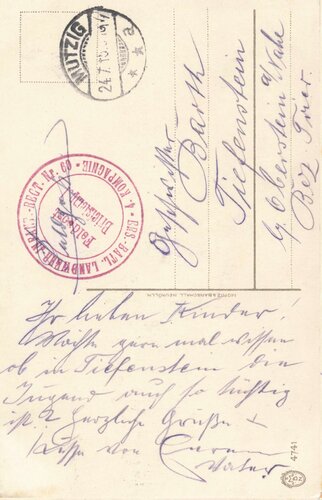 MUTZIG
24.7.15
* * a
4. ERS.-BATL. LANDWEHR-INFANT.-REGT. Nr. 60 * 4. KOMPAGNIE *
Geschwister
Barth
Tiefenstein
bg Oberstein a/Nahe
Bez Trier.
Ihr lieben Kinder!
Möchte gern mal wissen
ob in Tiefenstein die
Jugend auch so tüchtig
ist? Herzliche Grüße &
Küsse von Eurem
Vater
4741